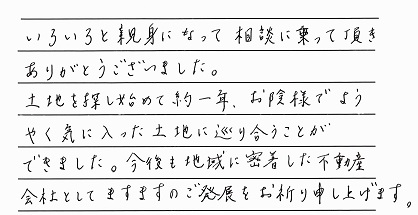 いろいろと親身になって相談に乗って頂き
ありがとうございました。
土地を探し始めて約一年、お陰様でよう
やく気に入った土地に巡り合うことが
できました。今後も地域に密着した不動産
会社としてますますのご発展をお祈り申し上げます。